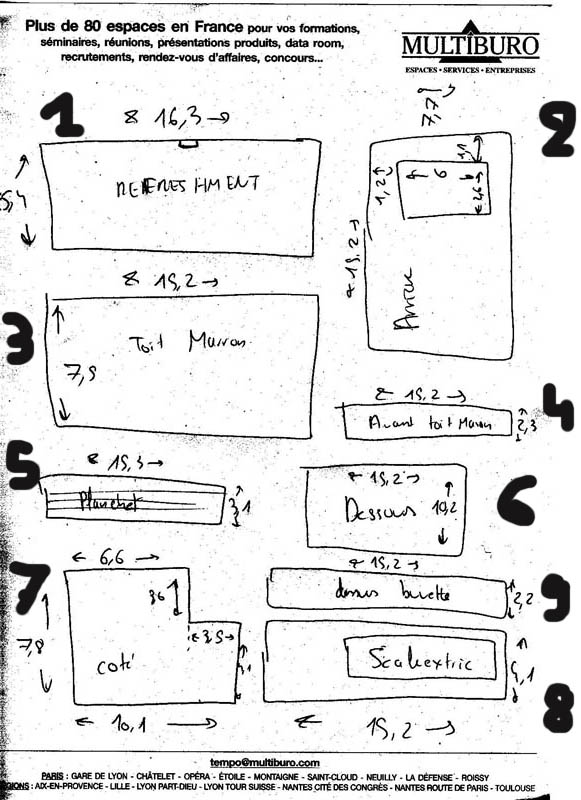 Plus de 80 espaces en France pour vos formations,
séminaires, réunions, présentations produits, data room,
recrutements, rendez-vous d'affaires, concours...
MULTIBURO
ESPACES • SERVICES • ENTREPRISES
1
16,3
5,4
2
7,7
1,1
1,2
6
2,6
15,2
3
15,2
Toit Marron
7,5
4
15,2
Avant toit Marron
2,3
5
15,3
Planchet
3,1
6
15,2
Dessous
10,2
7
6,6
3,6
3,5
7,8
coté
10,1
9
15,2
dessus buvette
2,2
Scalextric
8
15,2
tempo@multiburo.com
PARIS : GARE DE LYON - CHÂTELET - OPÉRA - ÉTOILE - MONTAIGNE - SAINT-CLOUD - NEUILLY - LA DÉFENSE - ROISSY
GIONS : AIX-EN-PROVENCE - LILLE - LYON PART-DIEU - LYON TOUR SUISSE - NANTES CITÉ DES CONGRÈS - NANTES ROUTE DE PARIS - TOULOUSE